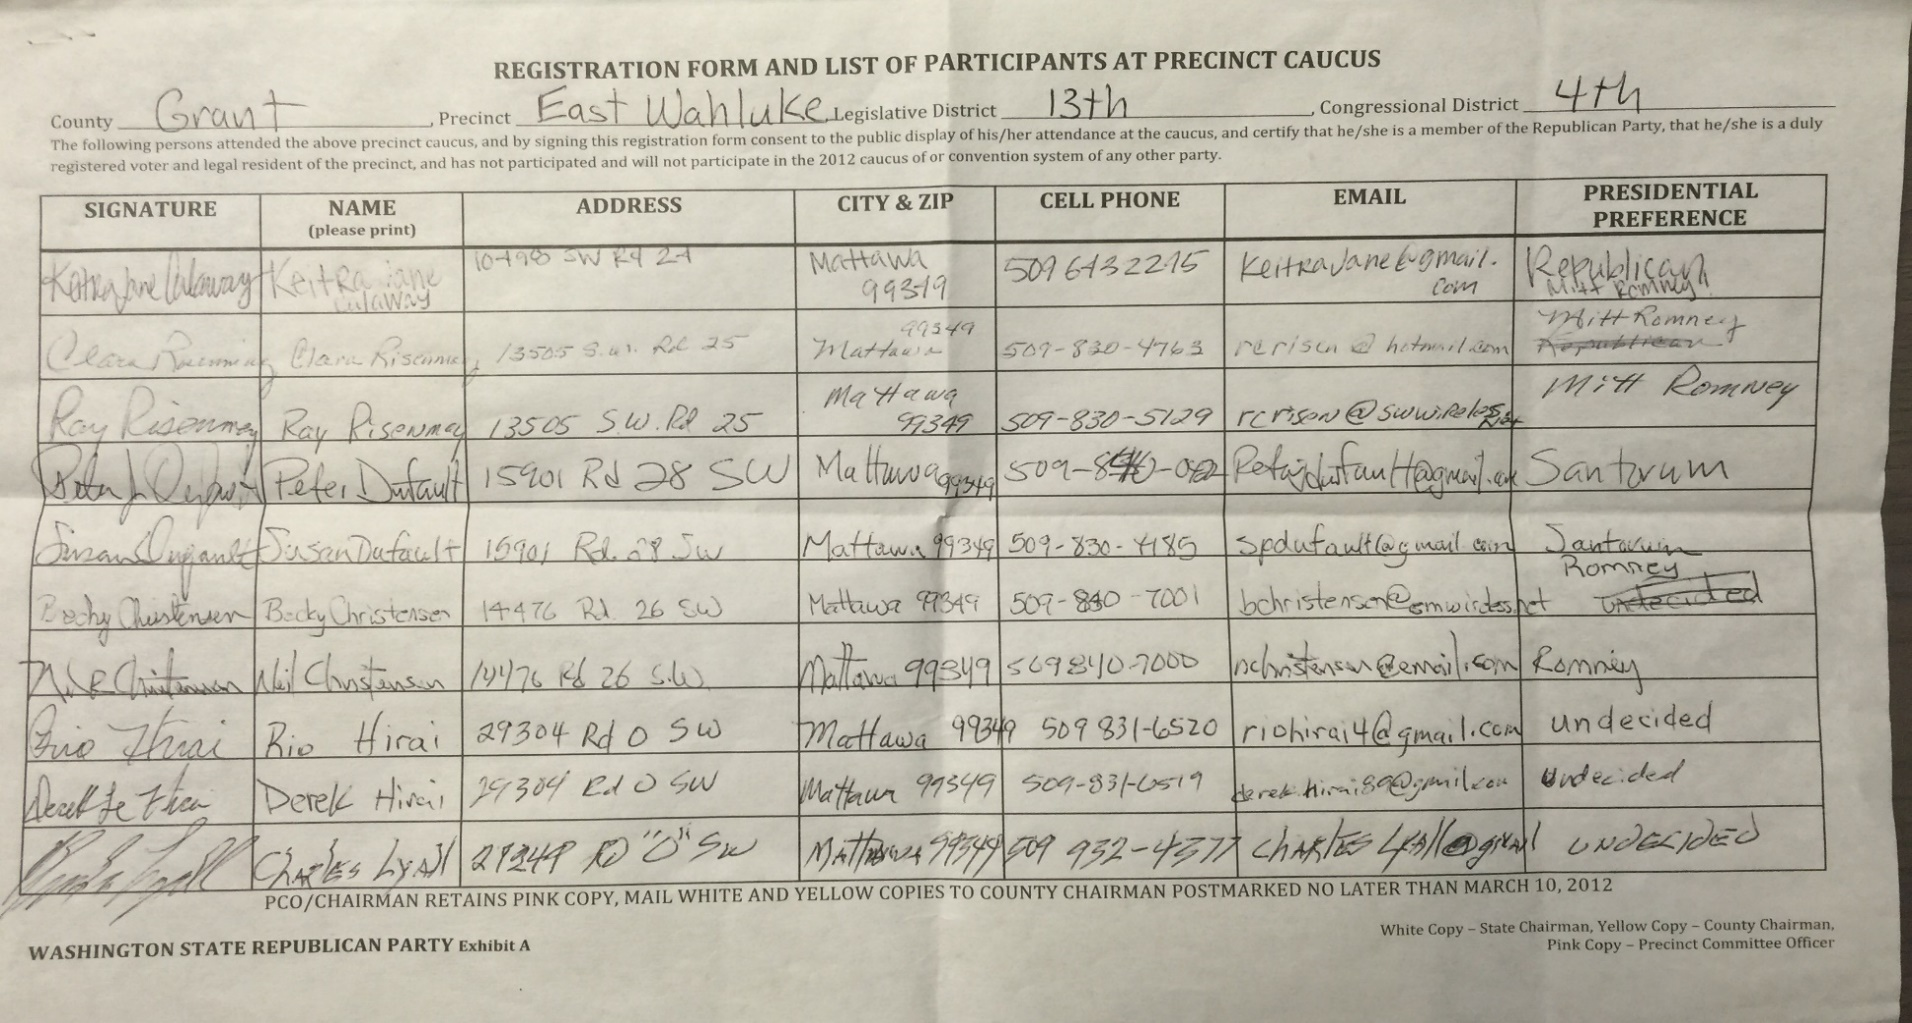 REGISTRATION FORM AND LIST OF PARTICIPANTS AT PRECINCT CAUCUS
County Grant, Precinct East Wahluke, Legislative District 13th, Congressional District 4th
The following persons attended the above precinct caucus, and by signing this registration form consent to the public display of his/her attendance at the caucus, and certify that he/she is a member of the Republican Party, that he/she is a duly
registered voter and legal resident of the precinct, and has not participated and will not participate in the 2012 caucus of or convention system of any other party.
SIGNATURE NAME (please print) ADDRESS CITY & ZIP CELL PHONE EMAIL PRESIDENTIAL PREFERENCE
Keitra Jane Calaway Keitra Jane Calaway SW Rd 24 Mattawa 99349 KeitraJane@gmail.com Republican Mitt Romney
Clara Risenmay Clara Risenmay 13505 S.W. Rd 25 Mattawa 99349 509-830-4763 rcrisen@hotmail.com Mitt Romney Republican
Ray Risenmay Ray Risenmay 13505 S.W. Rd 25 Mattawa 99349 509-830-5129 Mitt Romney
Peter Dufault 15901 Rd 28 SW Mattawa 99349 Santorum
Susan Dufault Susan Dufault 15901 Rd. 28 SW Mattawa 99349 509-830-4185 spdufault@gmail.com Santorum
Becky Christensen Becky Christensen 14476 Rd 26 SW Mattawa 99349 509-840-7001 Romney undecided
Neil Christensen 14476 Rd 26 S.W. Mattawa 99349 509 840-7000 nchristensen@email.com Romney
Rio Hirai Rio Hirai 29304 Rd O SW Mattawa 99349 509 831-6520 riohirai4@gmail.com undecided
Derek Hirai 29304 Rd O SW Mattawa 99349 509-831-6519 derek.hirai89@gmail.com Undecided
CHARLES LYALL RD "O" SW Mattawa 99349 509 932-4577 UNDECIDED
PCO/CHAIRMAN RETAINS PINK COPY, MAIL WHITE AND YELLOW COPIES TO COUNTY CHAIRMAN POSTMARKED NO LATER THAN MARCH 10, 2012
WASHINGTON STATE REPUBLICAN PARTY Exhibit A
White Copy – State Chairman, Yellow Copy – County Chairman,
Pink Copy – Precinct Committee Officer